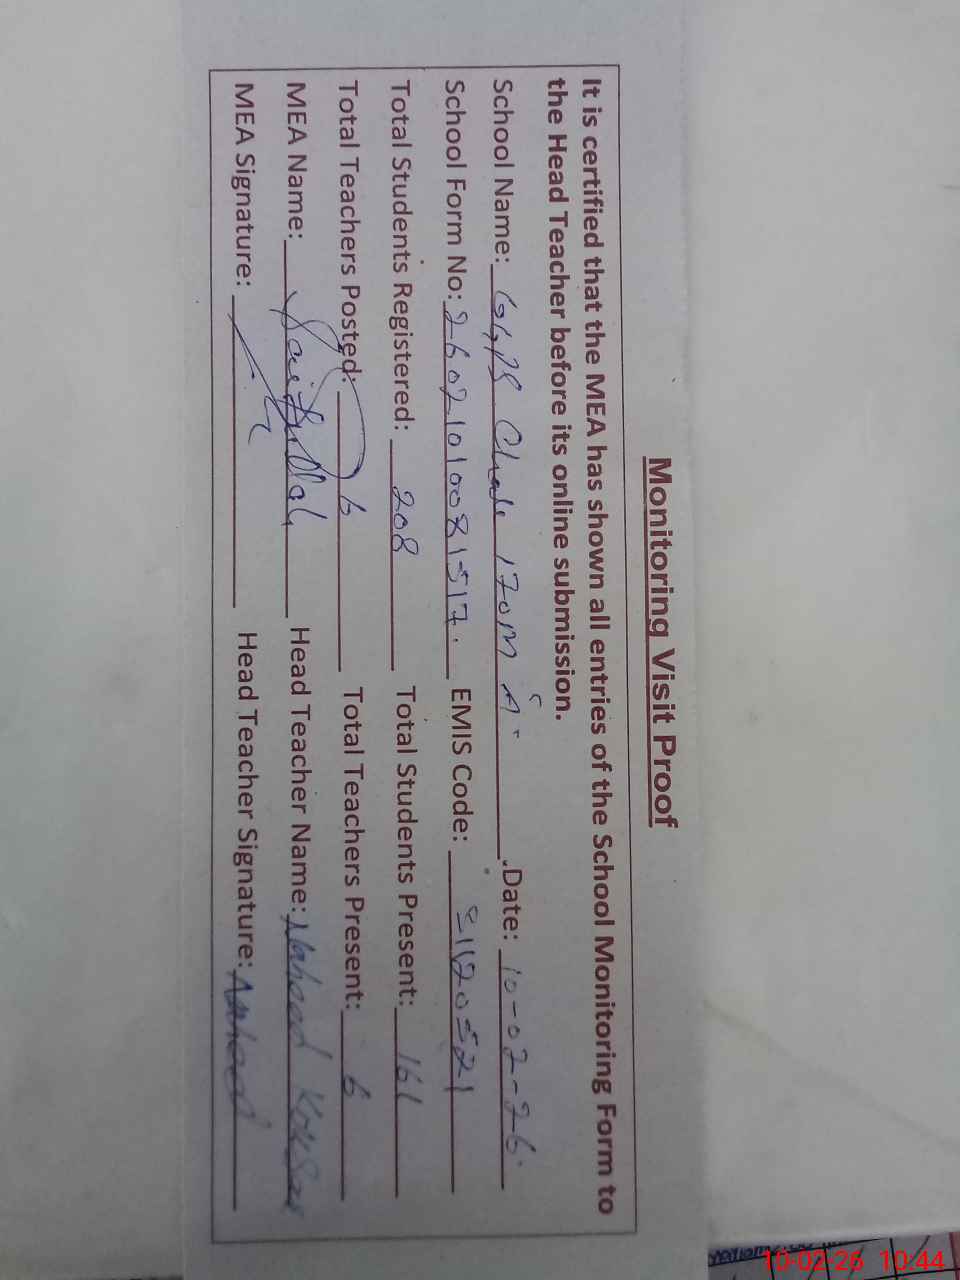 Monitoring Visit Proof
It is certified that the MEA has shown all entries of the School Monitoring Form to
the Head Teacher before its online submission.
School Name: GGPS Chak 170m .Date: 10-02-26.
School Form No: 26021010081517. EMIS Code: 31120521
Total Students Registered: 208 Total Students Present: 161
Total Teachers Posted: 6 Total Teachers Present: 6
MEA Name: Saif Ullah Head Teacher Name: Naheed Kousar
MEA Signature: Head Teacher Signature: Naheed
10-02-26 10:44